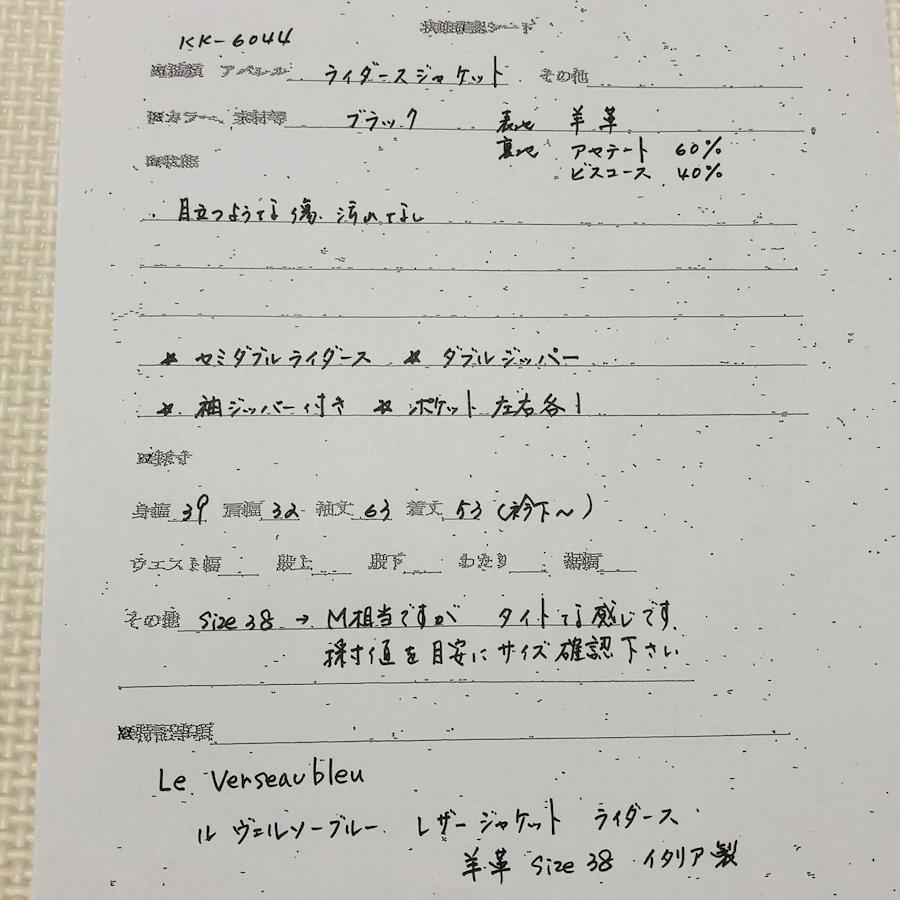 状態確認シート
KK-6044
アパレル ライダースジャケット その他
カラー、素材等 ブラック 表地 羊革
裏地 アセテート 60%
ビスコース 40%
・目立つような傷、汚れなし
* セミダブルライダース * ダブルジッパー
* 袖ジッパー付き * ポケット 左右各1
※採寸
身幅 39 肩幅 32 袖丈 63 着丈 53 (衿下～)
ウエスト幅 股上 股下 わたり 裾幅
その他 Size 38 → M相当ですが タイトな感じです。
採寸値を目安にサイズ確認下さい
※特記事項
Le Verseaubleu
ル ヴェルソーブルー レザージャケット ライダース
羊革 Size 38 イタリア製